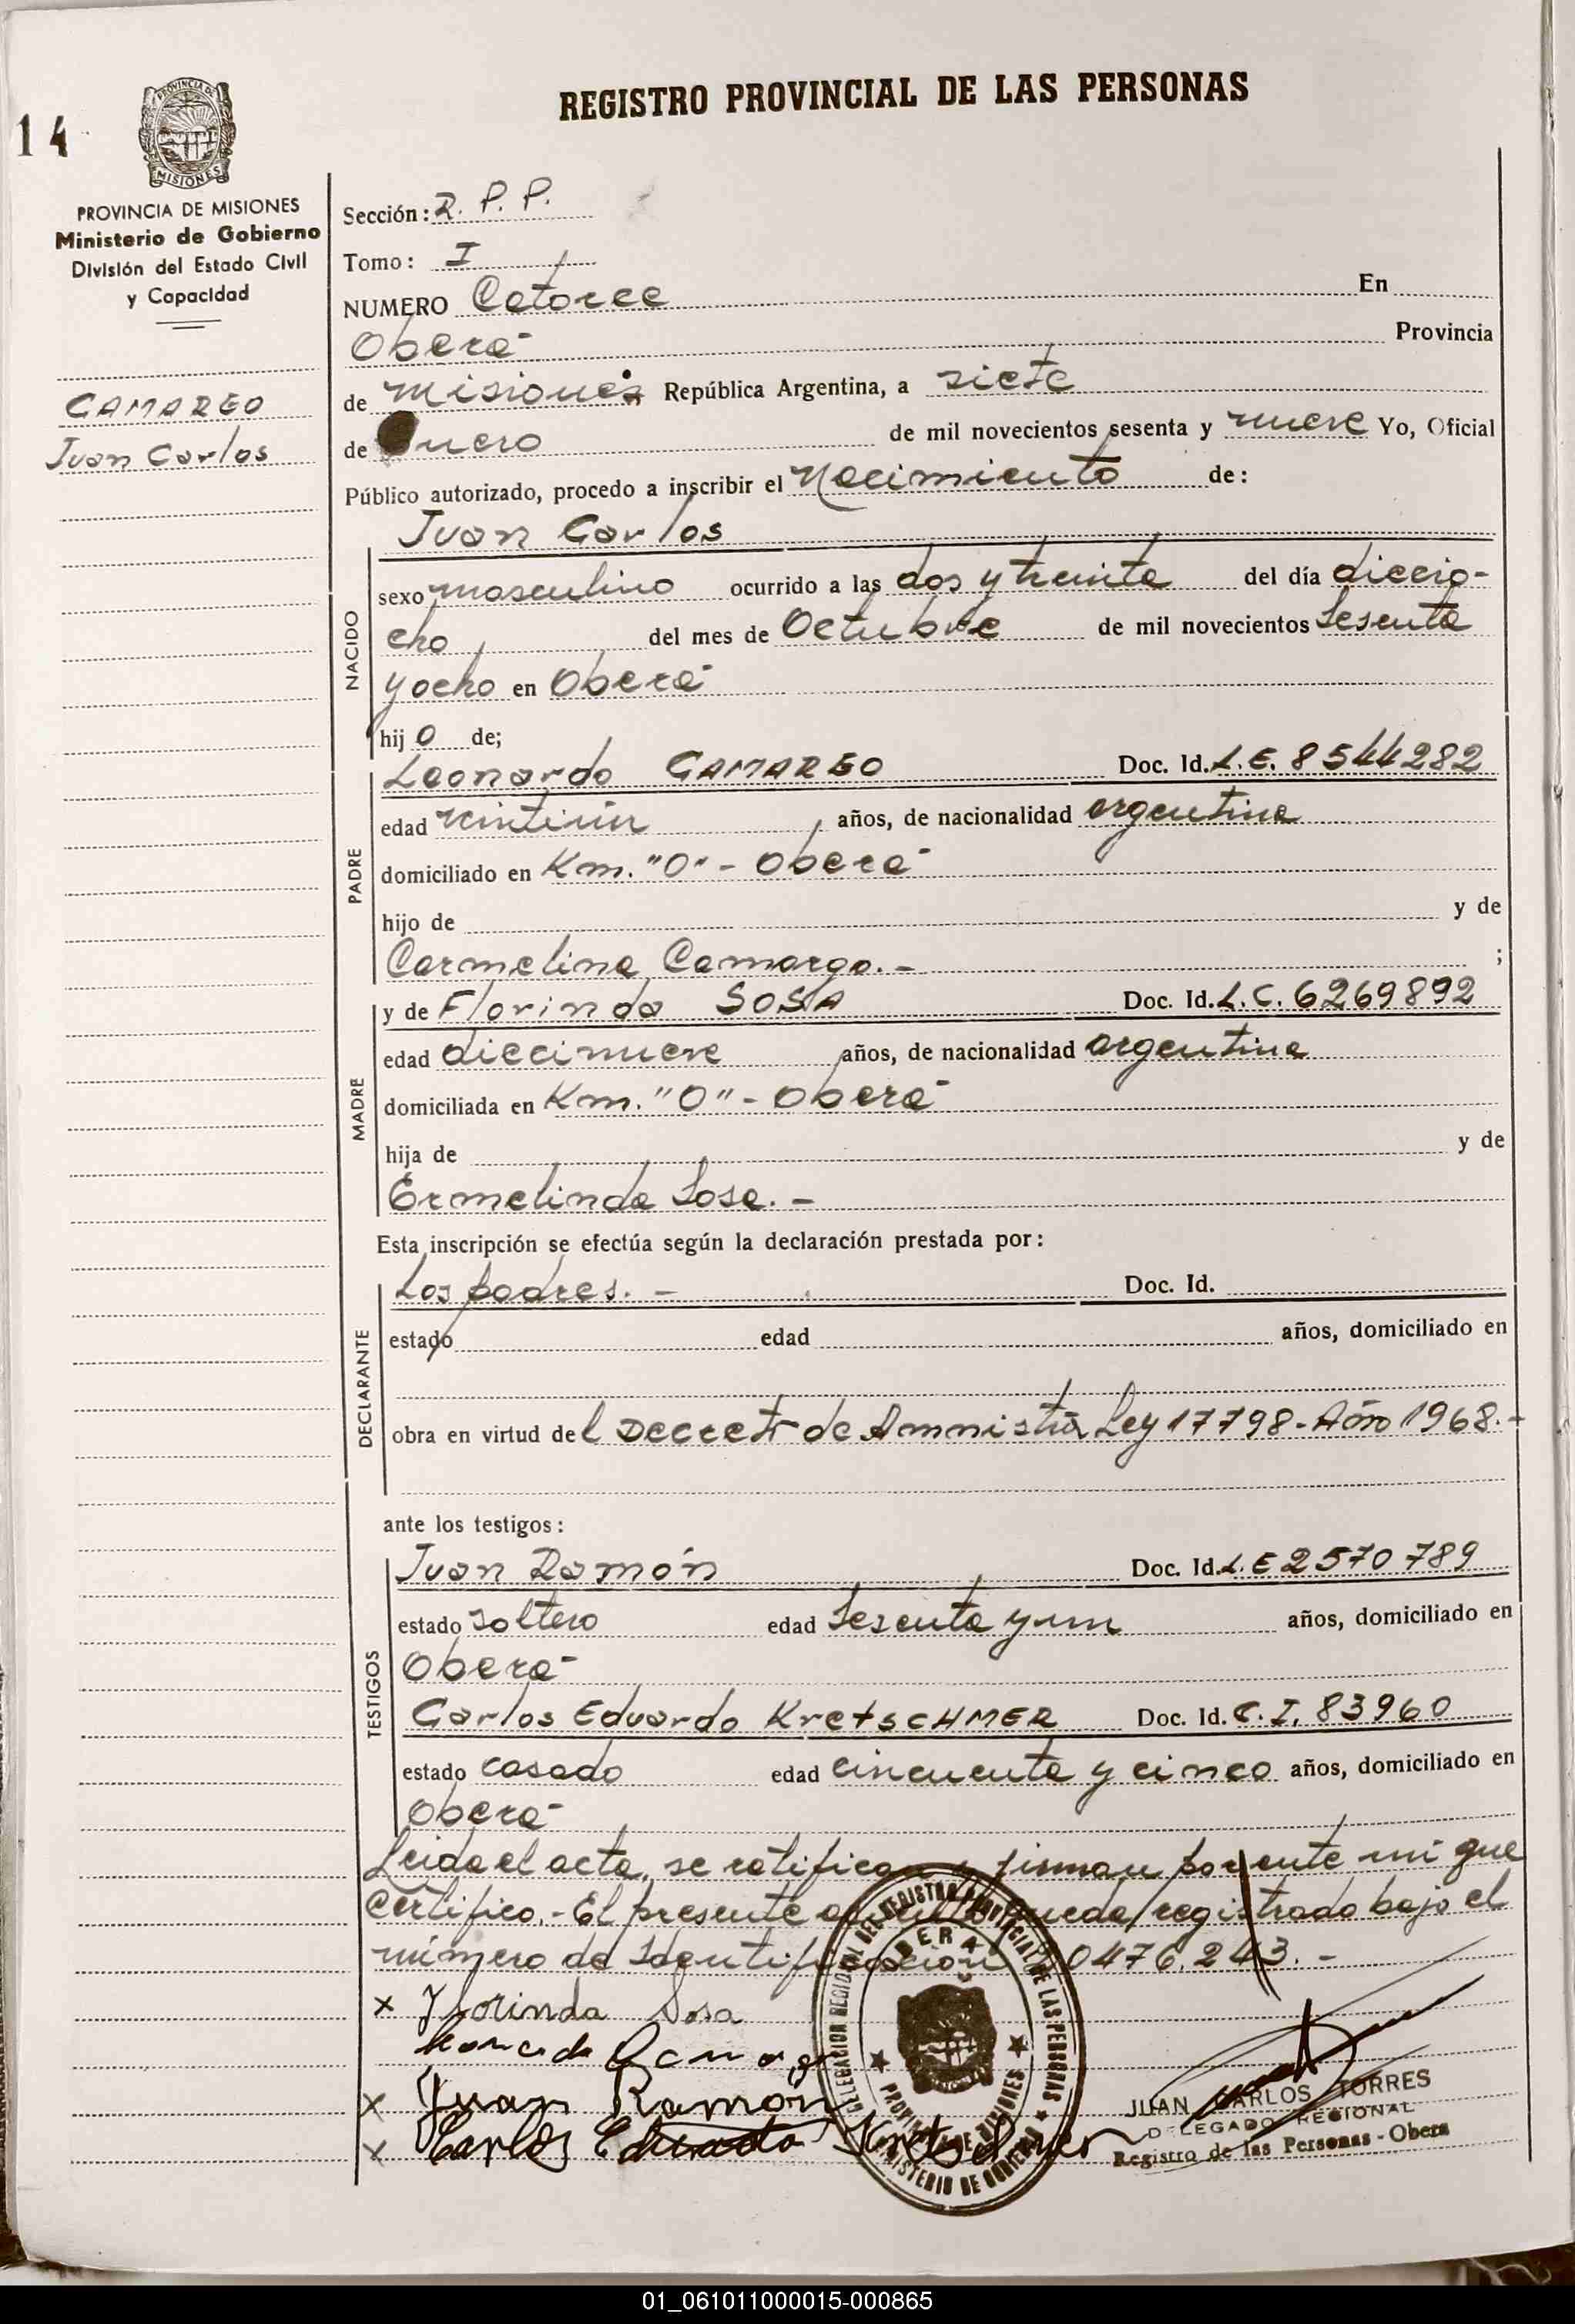 REGISTRO PROVINCIAL DE LAS PERSONAS
14
PROVINCIA DE MISIONES
PROVINCIA DE MISIONES
Ministerio de Gobierno
División del Estado Civil
y Capacidad
CAMARGO
Juan Carlos
Sección: R. P. P.
Tomo: I
NUMERO Catorce En
Oberá Provincia
de Misiones República Argentina, a siete
de Enero de mil novecientos sesenta y nueve Yo, Oficial
Público autorizado, procedo a inscribir el Nacimiento de:
Juan Carlos
NACIDO
sexo masculino ocurrido a las dos y treinta del día diecio-
cho del mes de Octubre de mil novecientos Sesenta
y ocho en Oberá
hijo de;
PADRE
Leonardo CAMARGO Doc. Id. L.E. 8544282
edad veintiún años, de nacionalidad argentina
domiciliado en Km. "0" - Oberá
hijo de y de
Carmelina Camargo. - ;
MADRE
y de Florinda SOSA Doc. Id. L.C. 6269892
edad diecinueve años, de nacionalidad argentina
domiciliada en Km. "0" - Oberá
hija de y de
Ermelinda Sosa. -
Esta inscripción se efectúa según la declaración prestada por:
DECLARANTE
Los padres. - Doc. Id.
estado edad años, domiciliado en
obra en virtud del Decreto de Amnistía Ley 17798 - Año 1968. -
ante los testigos:
TESTIGOS
Juan Ramón Doc. Id. L.E 2570789
estado soltero edad Sesenta y un años, domiciliado en
Oberá
Carlos Eduardo KretsCHMER Doc. Id. C.I. 83960
estado casado edad cincuenta y cinco años, domiciliado en
Oberá
Leida el acta, se ratifican y firman por ante mi que
certifico. - El presente queda registrado bajo el
número de Identificación 20476.243. -
x Florinda Sosa
Camargo
x Juan Ramón
x Carlos Eduardo Kretschmer
DELEGACION REGIONAL DEL REGISTRO PROVINCIAL DE LAS PERSONAS
OBERA
PROVINCIA DE MISIONES
MINISTERIO DE GOBIERNO
JUAN CARLOS TORRES
DELEGADO REGIONAL
Registro de las Personas - Obera
01_061011000015-000865